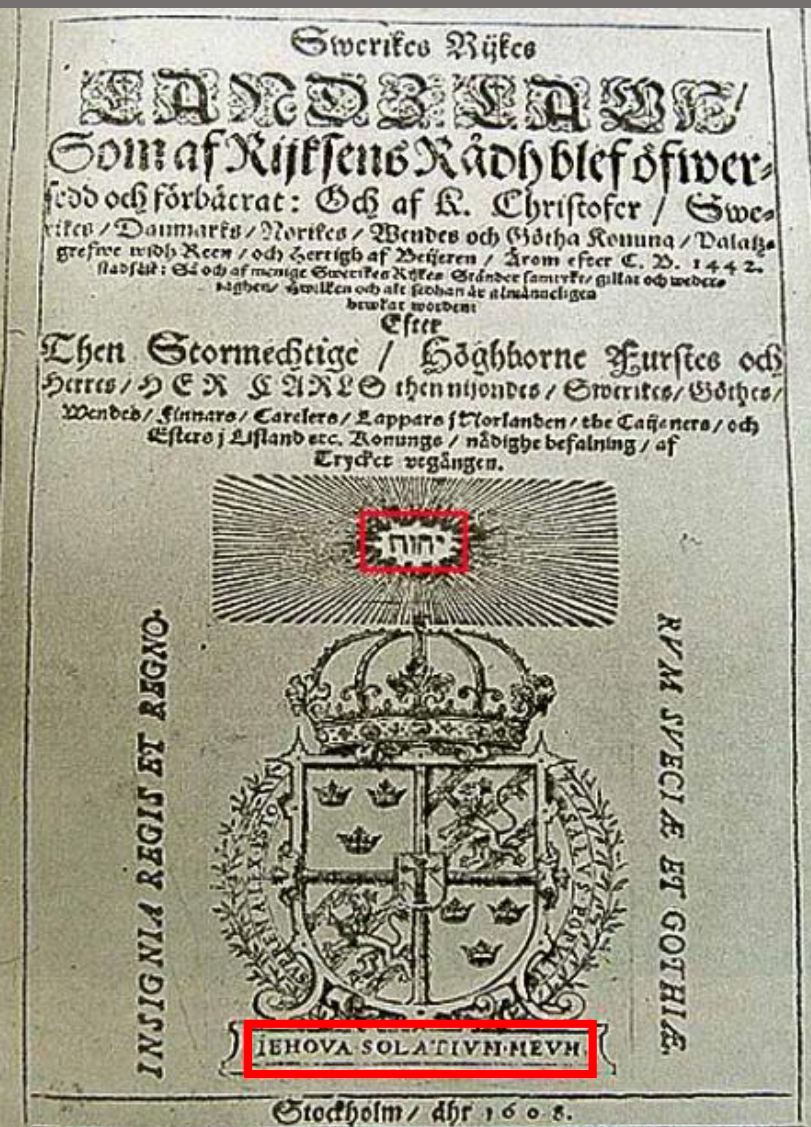 Swerikes Rijkes
LANDZLAGH/
Som af Rijksens Rådh blef öfwer-
sedd och förbätrat: Och af K. Christofer / Swe-
rikes / Danmarks / Norikes / Wendes och Götha Konung / Palatz-
grefwe widh Reen / och Hertigh af Beijeren / Årom efter C. B. 1442.
stadfäst: Så och af menige Swerikes Rijkes Ständer samtykt / gillat och weder-
saghen / hwilken och alt sedhan är almänneligen
brwkat worden:
Efter
Then Stormechtige / Höghborne Furstes och
Herres / HER CARLS then nijondes / Swerikes / Göthes /
Wendes / Finnars / Carelers / Lappars j Norlanden / the Caijaners / och
Esters j Lifland etc. Konungs / nådighe befalning / af
Trycket vtgången.
יהוה
INSIGNIA REGIS ET REGNO-
RVM SVECIÆ ET GOTHIÆ.
SALVS POPVLI
SVPREMA LEX ESTO
IEHOVA SOLATIVM·MEVM.
Stockholm / åhr 1608.